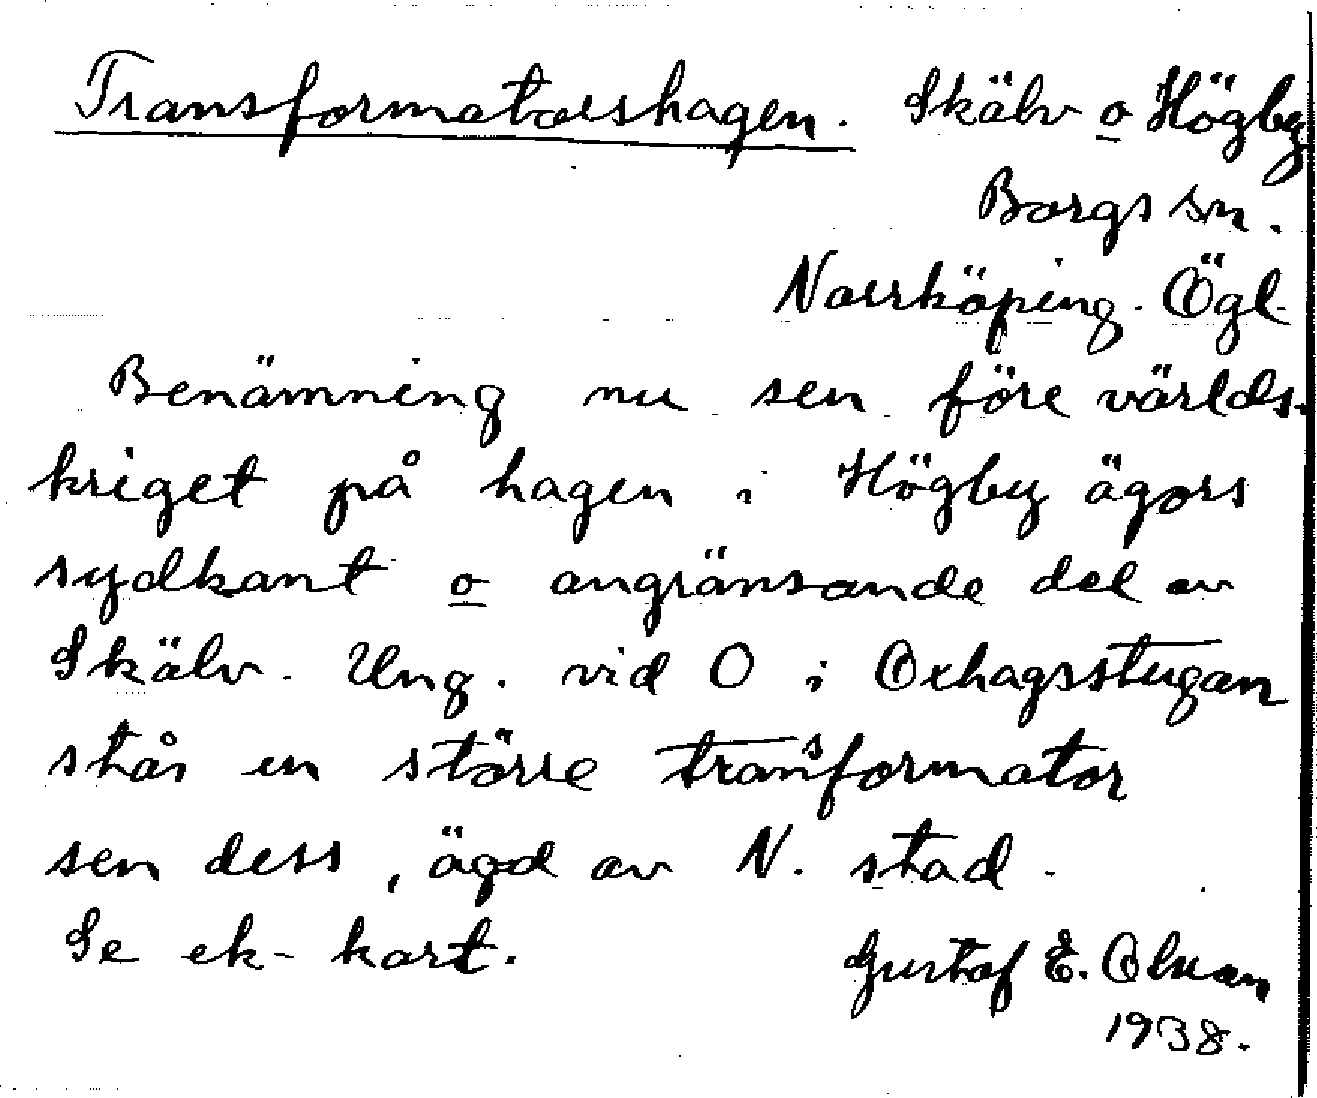 Transformatorshagen. Skälv o Högby
Borgs sn.
Norrköping. Ögl.
Benämning nu sen före världs-
kriget på hagen i Högby ägors
sydkant o angränsande del av
Skälv. Ung. vid O i Oxhagsstugan
står en större transformator
sen dess, ägd av N. stad.
Se ek-kart. Gustaf E. Olsson
1938.